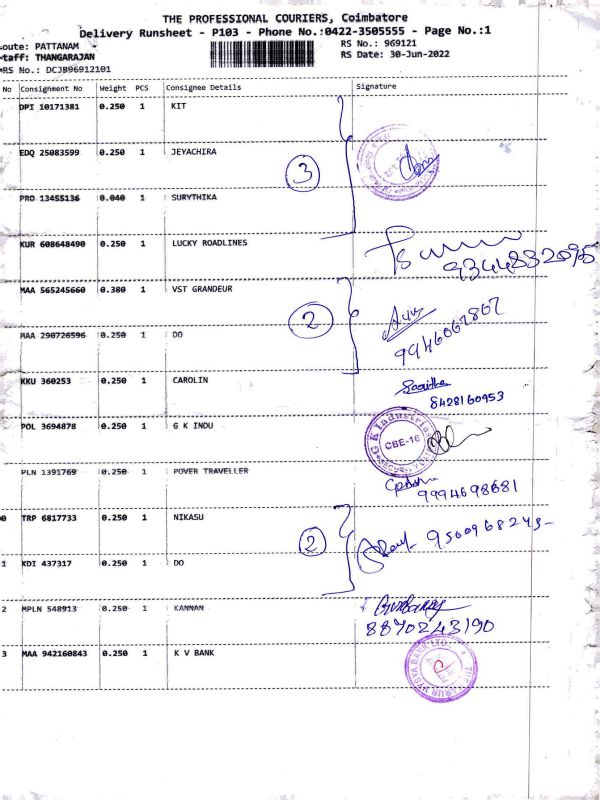 THE PROFESSIONAL COURIERS, Coimbatore
Delivery Runsheet - P103 - Phone No.:0422-3505555 - Page No.:1
oute: PATTANAM RS No.: 969121
taff: THANGARAJAN RS Date: 30-Jun-2022
RS No.: DCJB96912101
No Consignment No Weight PCS Consignee Details Signature
DPI 10171381 0.250 1 KIT
EDQ 25083599 0.250 1 JEYACHIRA
3
PRO 13455136 0.040 1 SURYTHIKA
KUR 608648490 0.250 1 LUCKY ROADLINES
9344832095
MAA 565245660 0.380 1 VST GRANDEUR
2
MAA 290726596 0.250 1 DO
9946062867
KKU 360253 0.250 1 CAROLIN
8428160953
POL 3694878 0.250 1 G K INDU
G K Industries
CBE-16
PLN 1391769 0.250 1 POVER TRAVELLER
9994698681
0 TRP 6817733 0.250 1 NIKASU
2
9500968243
1 KDI 437317 0.250 1 DO
2 MPLN 548913 0.250 1 KANNAN
8870243190
3 MAA 942160843 0.250 1 K V BANK
THE KARUR VYSYA BANK LTD.